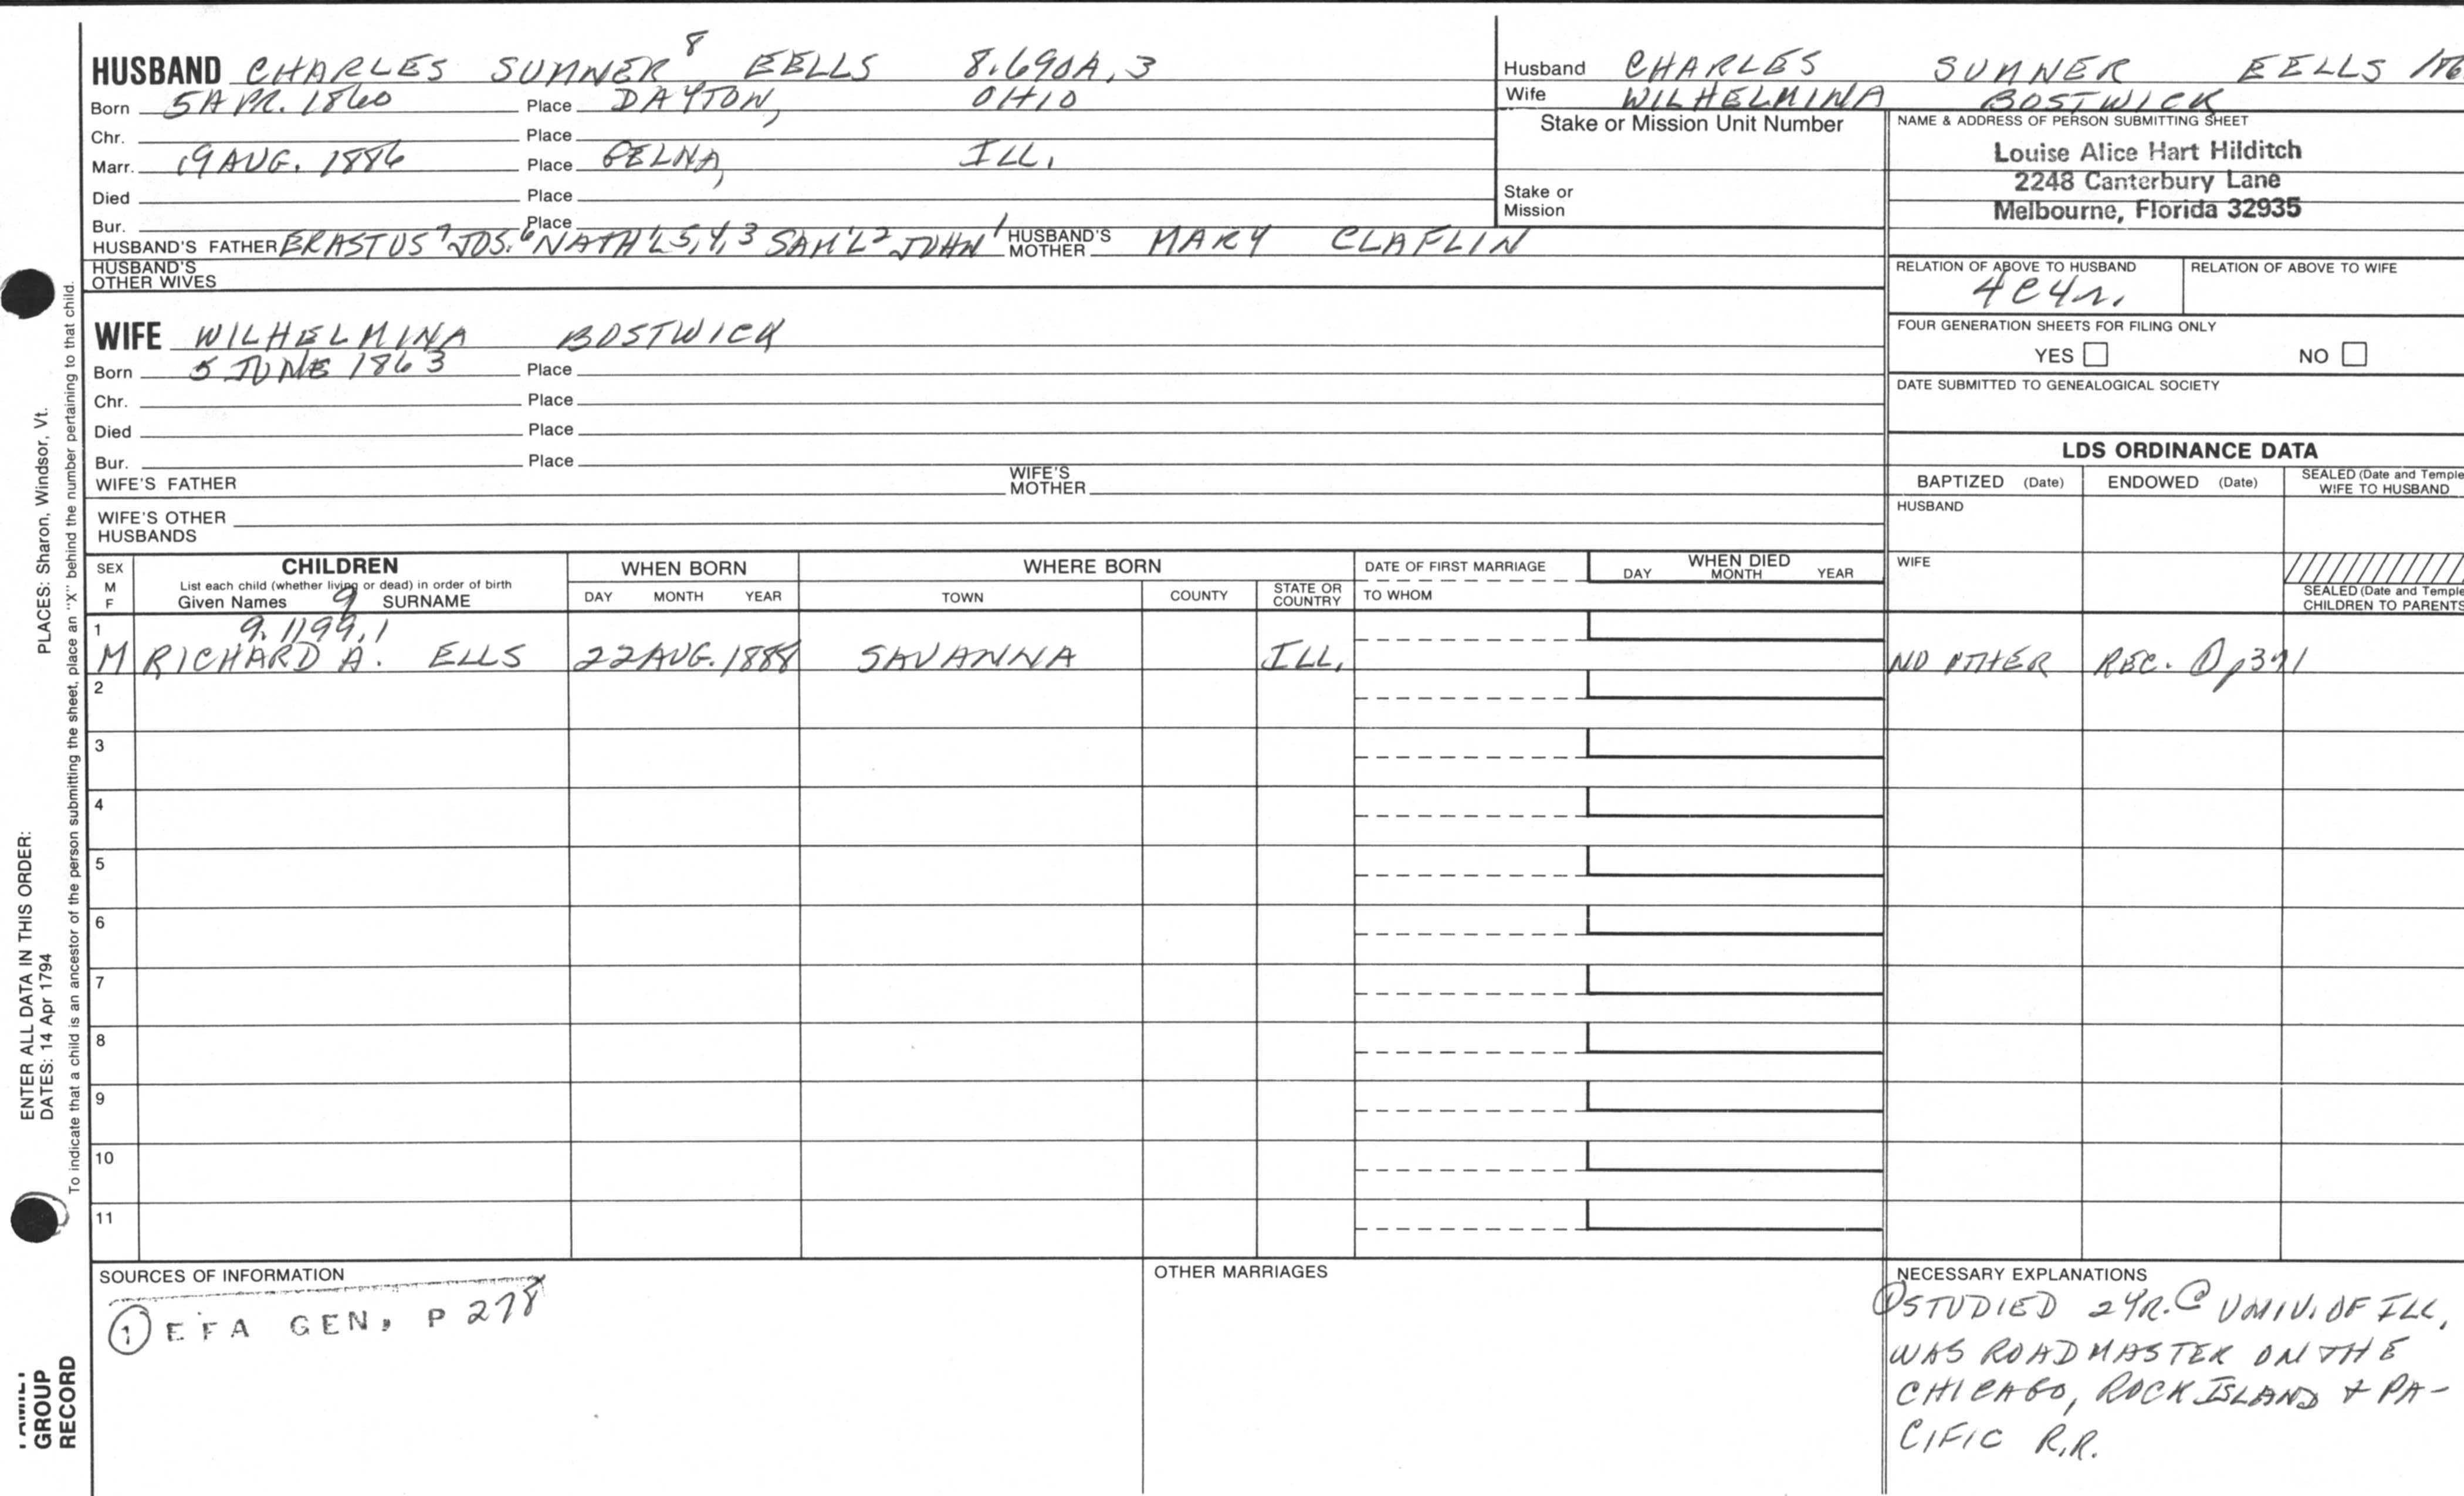 HUSBAND CHARLES SUMNER 8 EELLS 8.690A, 3
Born 5 APR. 1860 Place DAYTON, OHIO
Chr. Place
Marr. 19 AUG. 1886 Place GELNA, ILL.
Died Place
Bur. Place
HUSBAND'S FATHER ERASTUS 7 JOS. 6 NATH'L 5, 4, 3 SAM'L 2 JOHN 1 HUSBAND'S MOTHER MARY CLAFLIN
HUSBAND'S OTHER WIVES
Husband CHARLES SUMNER EELLS
Wife WILHELMINA BOSTWICK
Stake or Mission Unit Number
Stake or
Mission
NAME & ADDRESS OF PERSON SUBMITTING SHEET
Louise Alice Hart Hilditch
2248 Canterbury Lane
Melbourne, Florida 32935
RELATION OF ABOVE TO HUSBAND RELATION OF ABOVE TO WIFE
4C4r.
FOUR GENERATION SHEETS FOR FILING ONLY
YES NO
DATE SUBMITTED TO GENEALOGICAL SOCIETY
WIFE WILHELMINA BOSTWICK
Born 5 JUNE 1863 Place
Chr. Place
Died Place
Bur. Place
WIFE'S FATHER WIFE'S MOTHER
WIFE'S OTHER
HUSBANDS
LDS ORDINANCE DATA
BAPTIZED (Date) ENDOWED (Date) SEALED (Date and Temple
WIFE TO HUSBAND
HUSBAND
WIFE
SEALED (Date and Temple
CHILDREN TO PARENTS
SEX M F CHILDREN WHEN BORN WHERE BORN DATE OF FIRST MARRIAGE WHEN DIED
List each child (whether living or dead) in order of birth
Given Names 9 SURNAME DAY MONTH YEAR TOWN COUNTY STATE OR COUNTRY TO WHOM DAY MONTH YEAR
1 9.1199.1
M RICHARD A. ELLS 22 AUG. 1888 SAVANNA ILL. NO OTHER REC. ① p371
2
3
4
5
6
7
8
9
10
11
SOURCES OF INFORMATION
① EFA GEN, P 278
OTHER MARRIAGES
NECESSARY EXPLANATIONS
① STUDIED 2 YR. @ UNIV. OF ILL,
WAS ROADMASTER ON THE
CHICAGO, ROCK ISLAND & PA-
CIFIC R.R.
PLACES: Sharon, Windsor, Vt.
ENTER ALL DATA IN THIS ORDER:
DATES: 14 Apr 1794
To indicate that a child is an ancestor of the person submitting the sheet, place an "X" behind the number pertaining to that child.
FAMILY
GROUP
RECORD